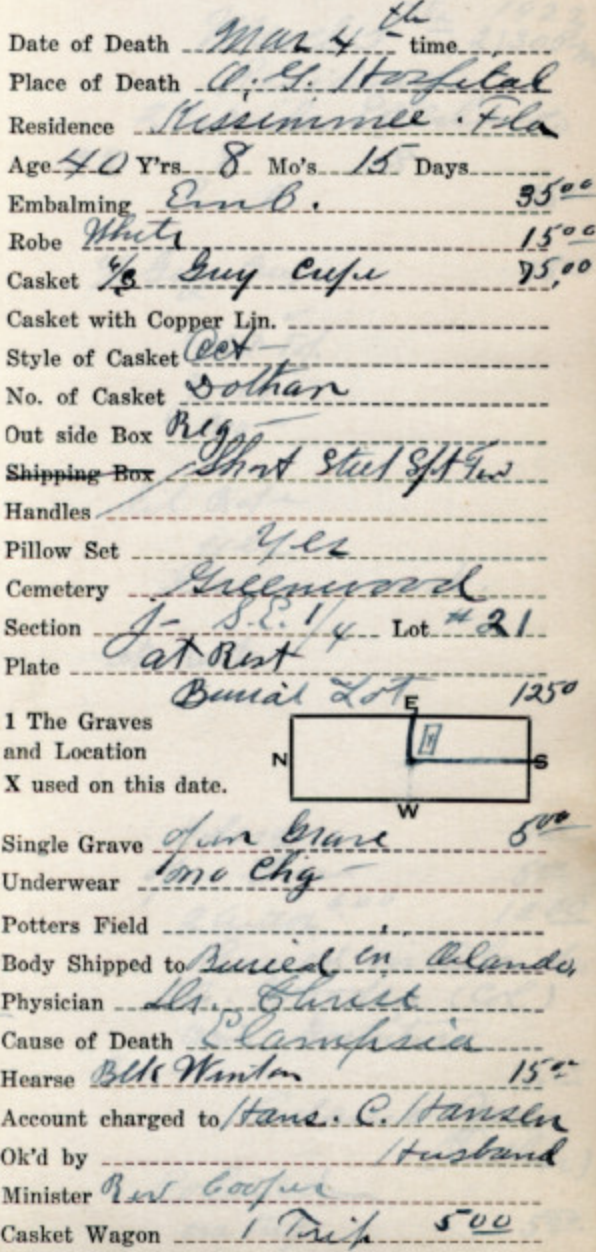 Date of Death Mar 4th time
Place of Death O. G. Hospital
Residence Kissimmee. Fla
Age 40 Y'rs 8 Mo's 15 Days
Embalming Emb. 35 00
Robe White 15 00
Casket 6/3 Gray Crepe 75,00
Casket with Copper Lin.
Style of Casket Oct
No. of Casket Dothan
Out side Box Reg
Shipping Box Short Steel
Handles
Pillow Set Yes
Cemetery Greenwood
Section J - S.E. 1/4 Lot #21
Plate at Rest
Burial Lot 12 50
E
1 The Graves
and Location
X used on this date.
N
S
W
Single Grave open Grave 5 00
Underwear no Chg
Potters Field
Body Shipped to Buried in Orlando,
Physician Dr. Christ
Cause of Death Elampsia
Hearse Blk Winton 15 00
Account charged to Hans. C. Hansen
Ok'd by Husband
Minister Rev Cooper
Casket Wagon 1 Trip 5 00